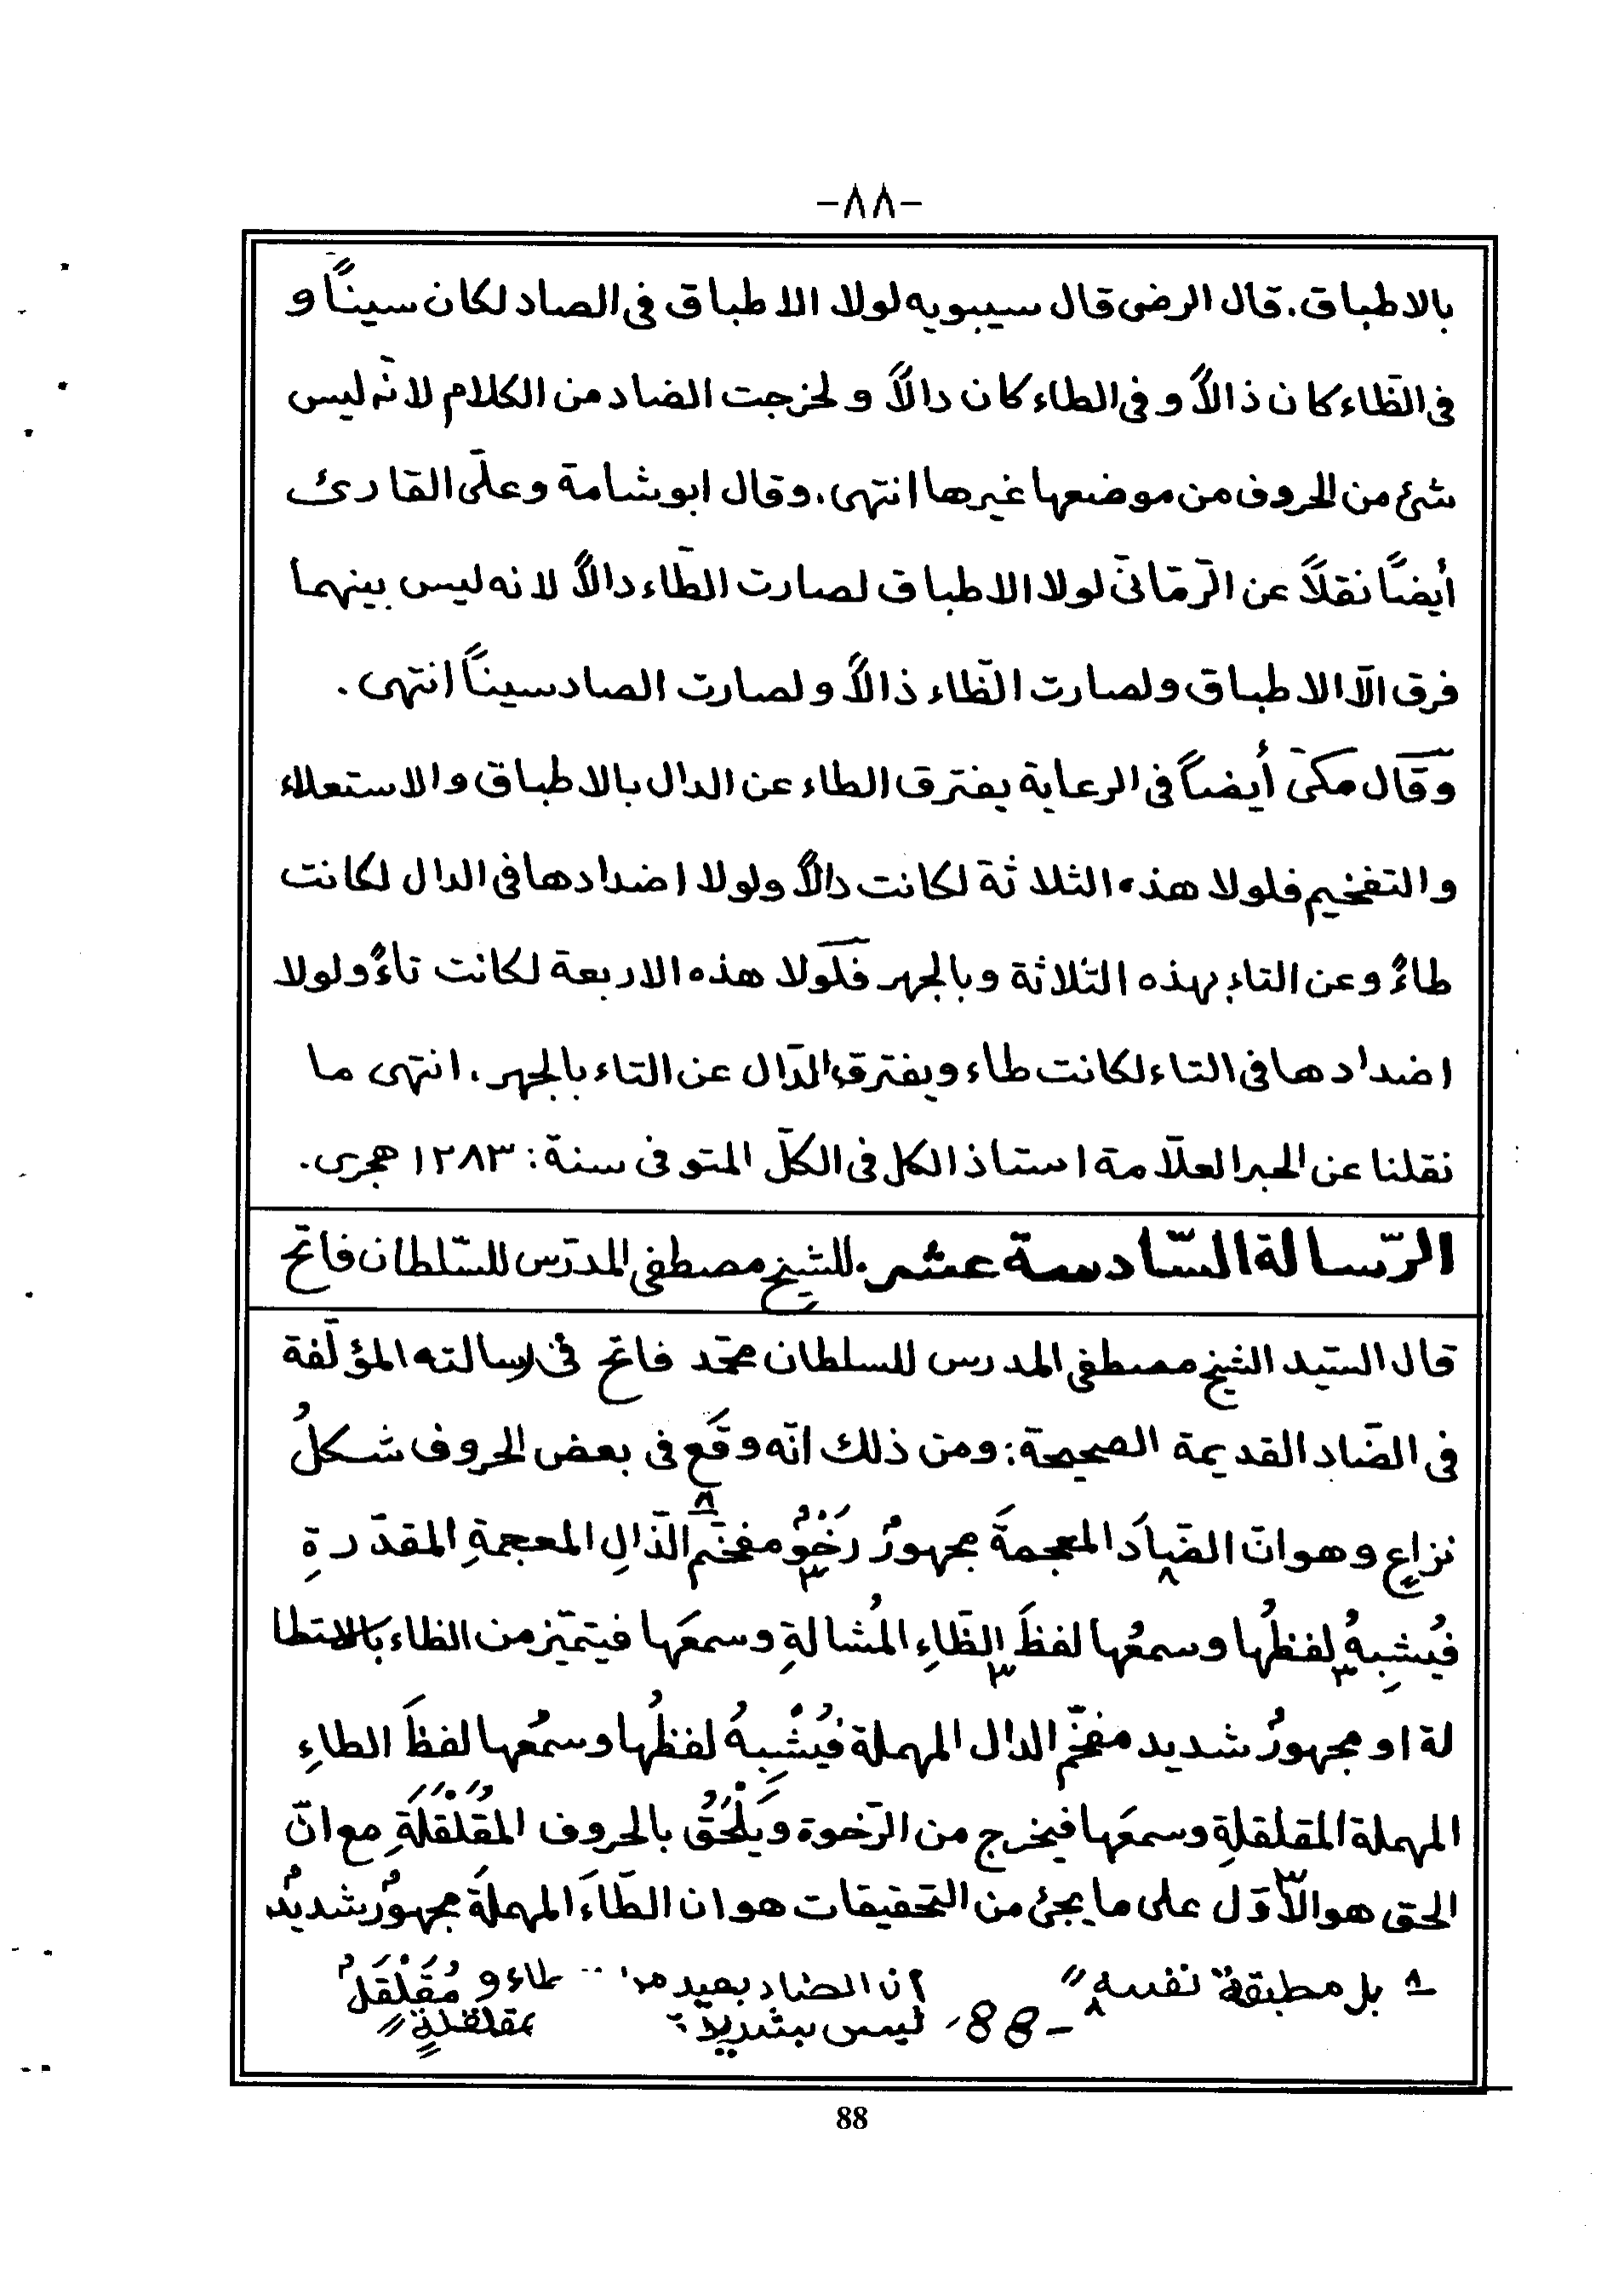 -٨٨-
بالاطباق. قال الرضى قال سيبويه لولا الاطباق فى الصاد لكان سيناً و
فى الظّاء كان ذالاً و فى الطاء كان دالاً و لخرجت الضاد من الكلام لانّه ليس
شئ من الحروف من موضعها غيرها انتهى. وقال ابو شامة وعلى القارئ
أيضاً نقلاً عن الرّمّانىّ لولا الاطباق لصارت الطّاء دالاً لانه ليس بينهما
فرق الّا الاطباق ولصارت الظّاء ذالاً ولصارت الصاد سيناً انتهى.
وقال مكىّ أيضاً فى الرعاية يفترق الطاء عن الدال بالاطباق والاستعلاء
والتفخيم فلولا هذه الثلاثة لكانت دالاً ولولا اضدادها فى الدال لكانت
طاءً وعن التاء بهذه الثلاثة وبالجهر فلولا هذه الاربعة لكانت تاءً ولولا
اضدادها فى التاء لكانت طاء ويفترق الدّال عن التاء بالجهر. انتهى ما
نقلنا عن الحبر العلّامة استاذ الكل فى الكلّ المتوفى سنة: ١٢٨٣ هجرى.
الرّسالة السّادسة عشر. للشيخ مصطفى المدرّس للسّلطان فاتح
قال السّيد الشيخ مصطفى المدرس للسلطان محمّد فاتح فى رسالته المؤلّفة
فى الضّاد القديمة الصحيحة: ومن ذلك انّه وقَع فى بعض الحروف شكلُ
نزاعٍ وهو انّ الضّادَ المعجمةَ مجهورٌ رَخْوٌ مفخّم الذّالِ المعجمةِ المقدّرةِ
فيُشبِهُ لفظُها وسمعُها لفظَ الظّاءِ المُشالةِ وسمعَها فيتميّز من الظاء بالاستطا
لة او مجهورٌ شديد مفخّم الدال المهملة فيُشْبِهُ لفظُها وسمعُها لفظَ الطاءِ
المهملة المقلقلةِ وسمعَها فيخرج من الرّخوة ويَلْحَقُ بالحروف المُقَلْقَلَةِ مع انّ
الحق هو الاّوّل على ما يجئ من التحقيقات هو ان الطّاءَ المهملةَ مجهورٌ شديدٌ
٨ بل مطبقةٌ نفسه " ان الضاد بعيد طاء و مُقَلْقَلٌ
٨ - 88 ليس بشديدة بمقلقلةٍ "
88